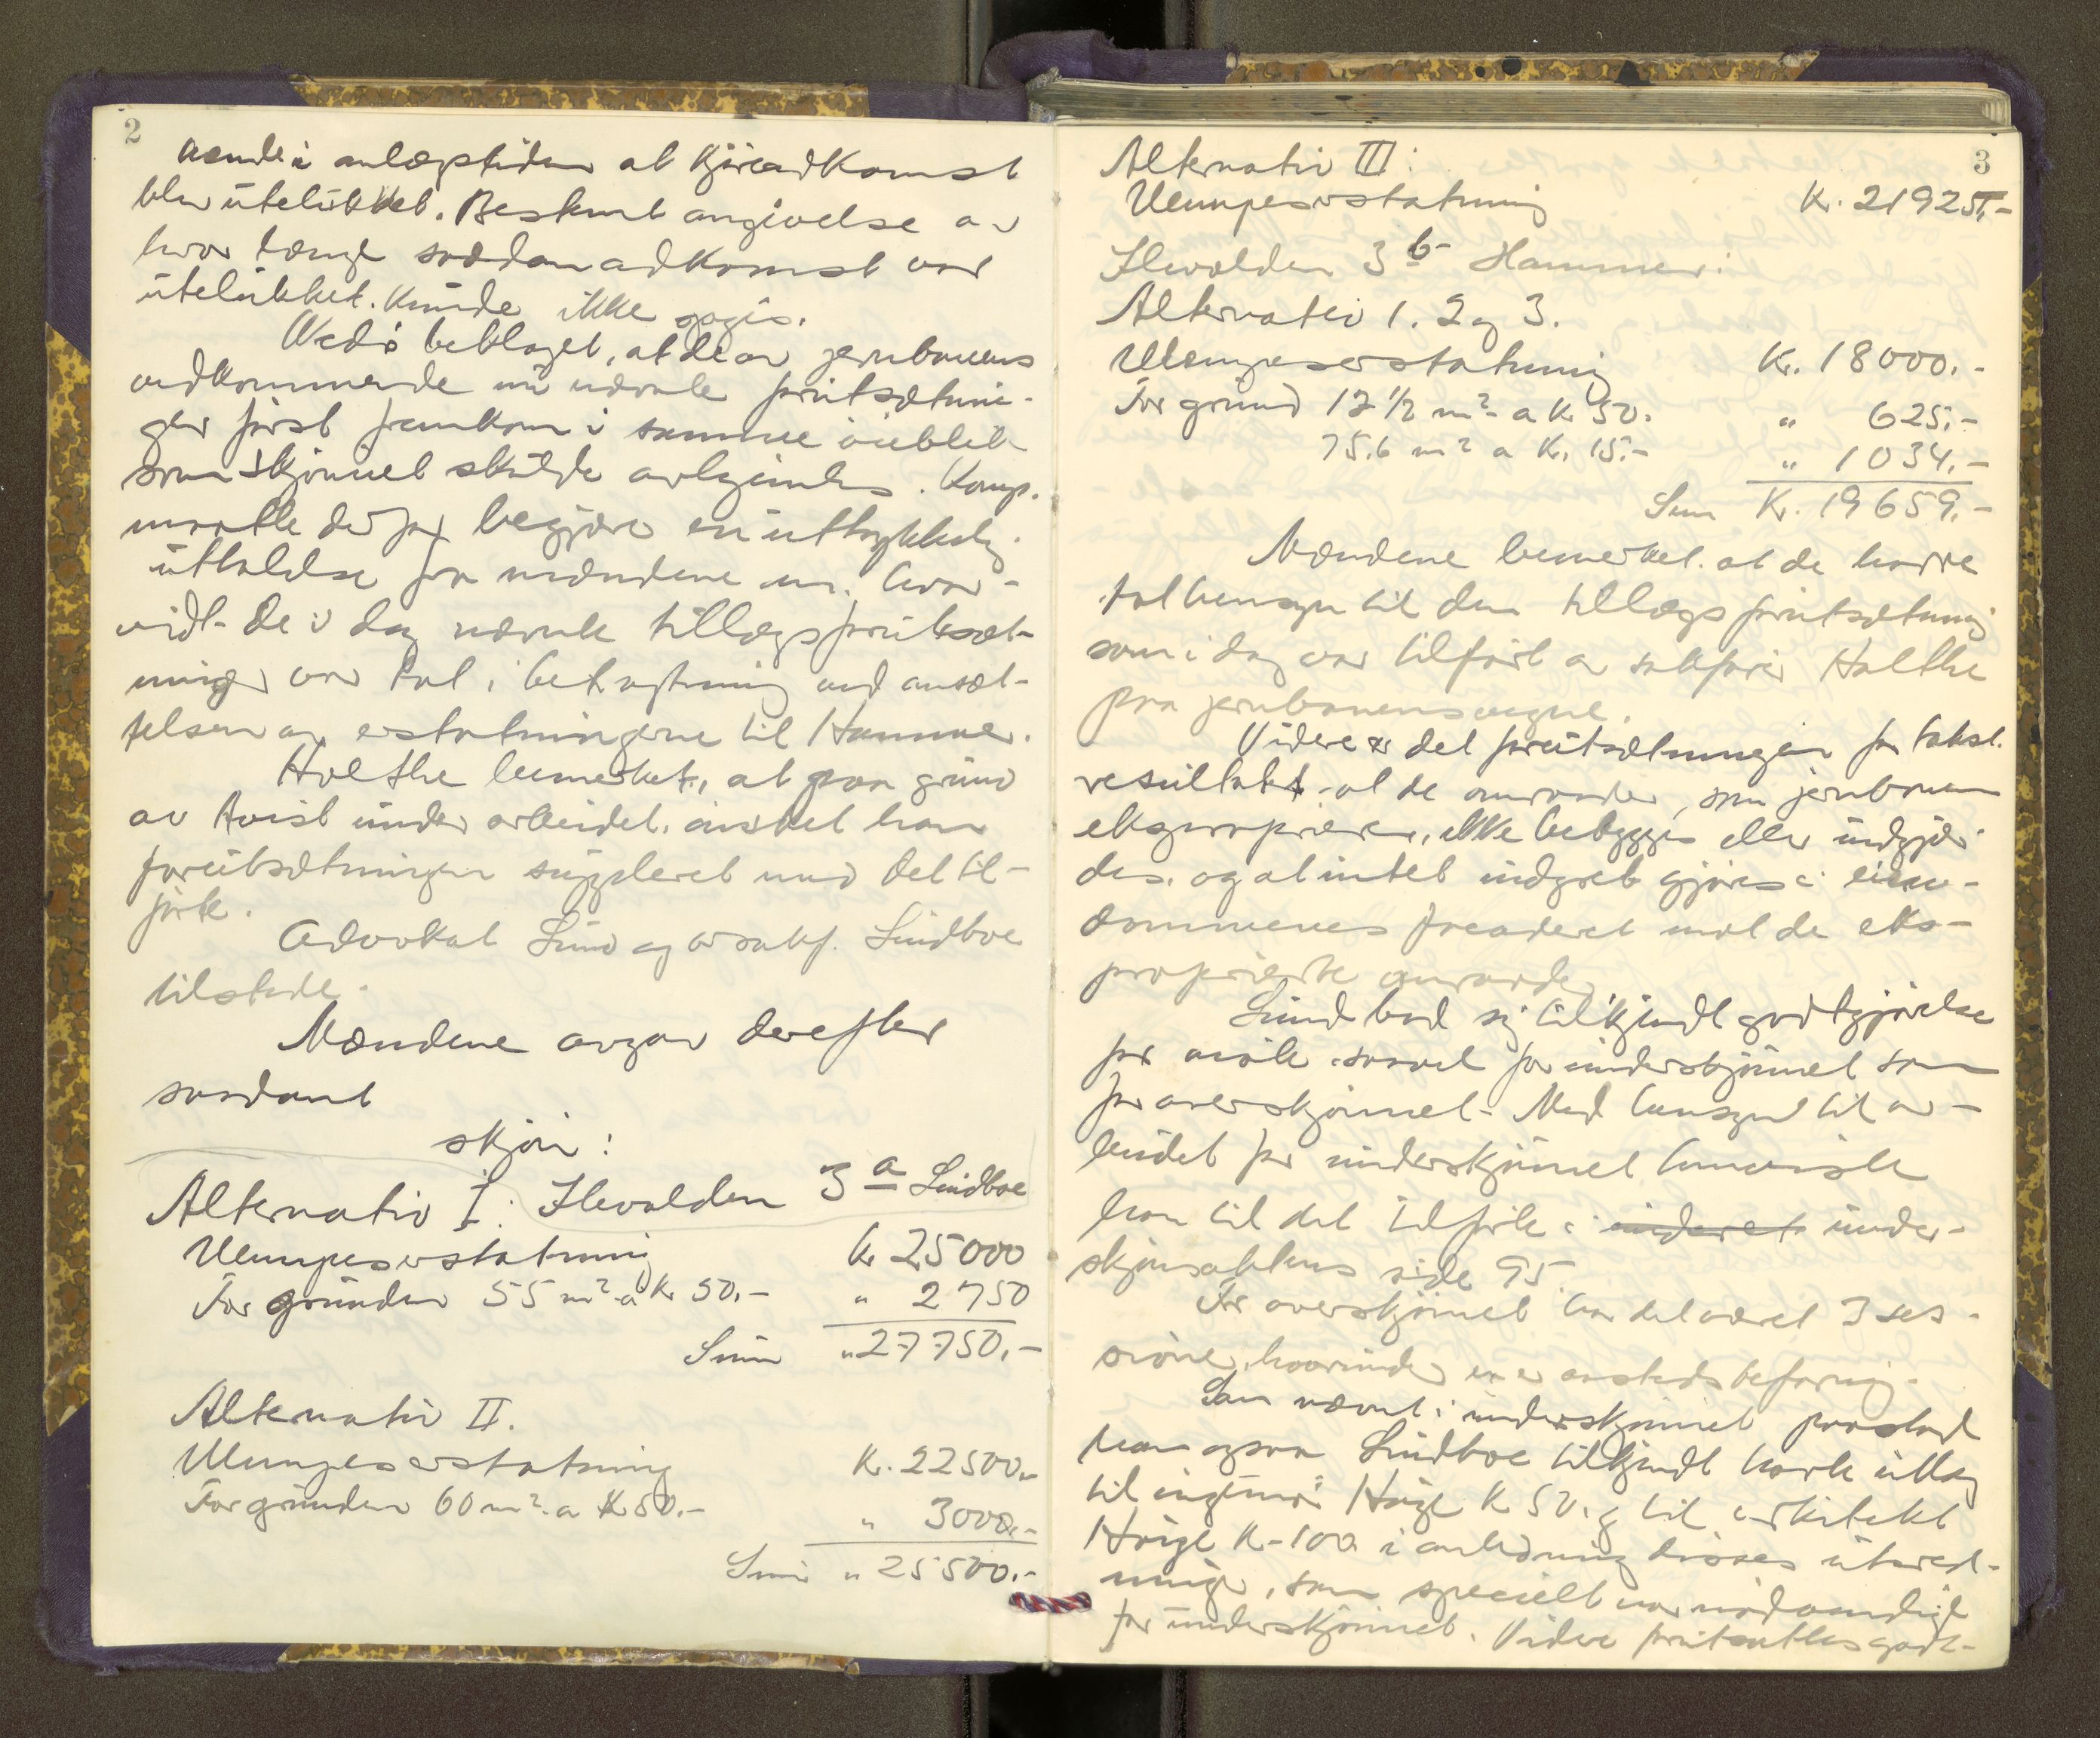 2
vendei anlægstiden at kjøreadkomst
blev utelukket. Bestemt angivelse av
hvor længe saadan adkomst var
utelukket. kunde ikke gjøres.
beklaget, at de av jernbanens
vedkommende nu nævnte forutsætnin-
ger først fremkom i samme øieblik
som skjønnet skulde avhjemles. Komp.
maatte derfor begjære en uttrykkelig
uttalelse fra mændene om hvor-
vidt de i dag nævnte tillægsforutsæt-
ninger var tat i betragtning ved ansæt-
telsen av erstatningerne til Hammer.
Holthe bemerket, at paa grund
av tvist under arbeidet, ønsket han
forutsætningen suppleret med det til-
førte.
Advokat Lund og o.r.sakf. Lindboe
tilstede.
Mændene avgav derefter
saadant
skjøn:
Alternativ I: Ilevolden 3 a Lindboe
Ulempeserstatning Kr 25000
For grunden 55 m² a Kr 50.- " 2750
Sum " 27750.-
Alternativ II.
Ulempeserstatning Kr. 22500.-
For grunden 60 m² a Kr 50.- " 3000.-
Sum " 25500.-
3
Alternativ III:
Ulempeserstatning Kr. 21925.-
Ilevolden 3 b- Hammer:
Alternativ 1. 2 og 3.
Ulempeserstatning Kr. 18000.-
For grund 12 1/2 m² a Kr 50. " 625.-
75.6 m² a Kr. 15.- " 1034.-
Sum Kr. 19659.-
Mændene bemerket at de havde
tat hensyn til den tillægsforutsætning
som i dag var tilført av sakfører Holthe
paa jernbanens vegne.
Videre er det forutsætningen for takst-
resultatet, at de omraader, som jernbanen
eksproprierer, ikke bebygges eller indgjær-
des, og at intet indgreb gjøres i eien-
dommenes facaderet mot de eks-
proprierte omraader.
Lund bad sig tilkjendt godtgjørelse
for møte saavel for underskjønnet som
for overskjønnet. Med hensyn til ar-
beidet for underskjønnet henviste
han til det tilførte i under-
skjønsaktens side 95.
For overskjønnet har det været 3 ses-
sioner, hvorunder en er aastedsbefaring.
Som nævnt i underskjønnet paastod
han ogsaa Lindboe tilkjendt havte utlæg
til ingeniør Høgh Kr 50. og til arkitekt
Høigh Kr-100 i anledning disses utred-
ninger, som specielt var nødvendige
for underskjønnet. Videre forutsættes godt-